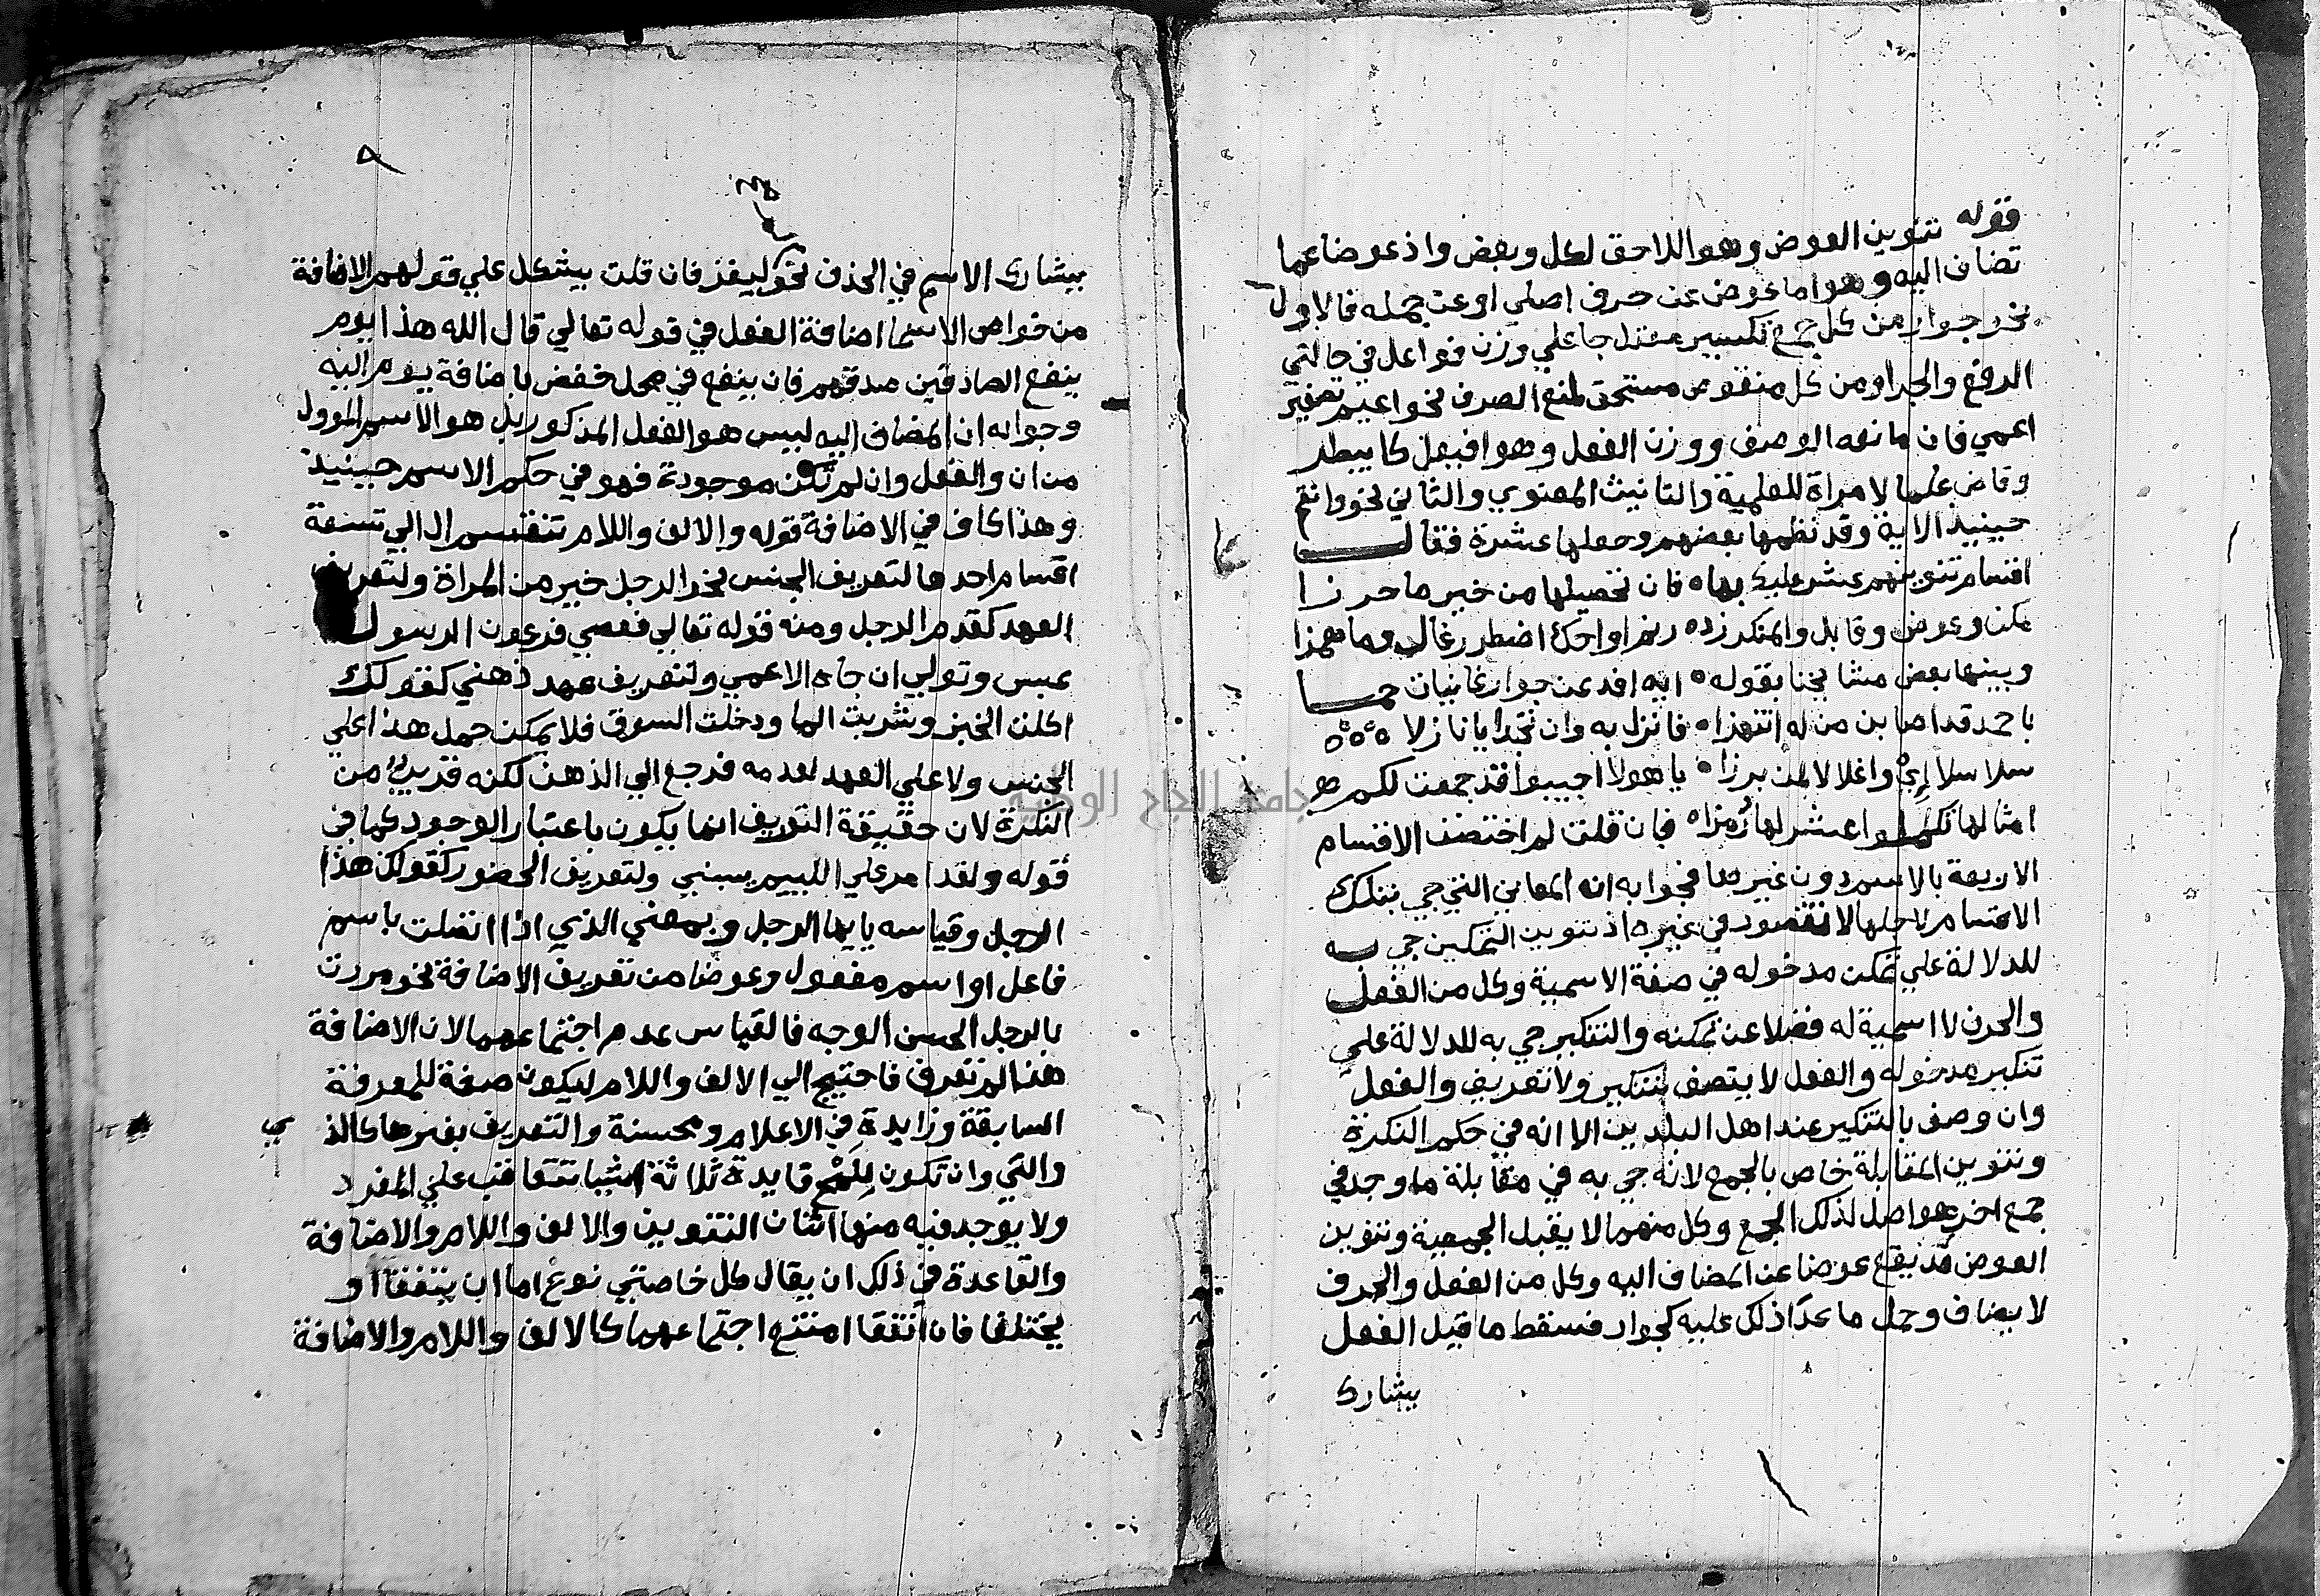 قوله تنوين العوض وهو اللاحق لكل وبعض واذ عوضا عما
تضاف اليه وهو اما عوض عن حرف اصلي او عن جمله فالاول
نحو جوار من كل جمع تكسير معتل جا علي وزن فواعل في حالتي
الرفع والجر او من كل منقوص مستحق لمنع الصرف نحو اعيم تصغير
اعمي فان مانعه الوصف ووزن الفعل وهو افيعل كابيطر
وقاض علما لامراة للعلمية والتانيث المعنوي والثاني نحو وانتم
حينيذ الاية وقد نظمها بعضهم وجعلها عشرة فقال
اقسام تنوينهم عشر عليك بها ه فان تحصيلها من خير ما حرزا
مكن وعوض وقابل والمنكر زد ه رنم او احك اضطرر غال وما همزا
وبينها بعض مشايخنا بقوله ه ايه افد عن جوار غانيات حما
يا حمد قد اصابن من له انتهزا ه فانزل به وان تجد ايا نازلا ه ه ه
سلاسلا اي واغلالا لمن برزا ه يا هولا اجيبوا قد جمعت لكم
امثالها تكملوا عشر لها رمزا ه فان قلت لم اختصت الاقسام
الاربعة بالاسم دون غيرها فجوابه انه المعاني التي جي بتلك
الاقسام لاجلها لا تتصور في غيره اذ تنوين التمكين جي به
للدلالة علي تمكن مدخوله في صفة الاسمية وكل من الفعل
والحرف لا اسمية له فضلا عن تمكنه والتنكير جي به للدلالة علي
تنكير مدخوله والفعل لا يتصف بتنكير ولا تعريف والفعل
وان وصف بالتنكير عند اهل البلدين الا انه في حكم النكرة
وتنوين المقابلة خاص بالجمع لانه جي به في مقابلة ما وجد في
جمع اخر هو اصل لذلك الجمع وكل منهما لا يقبل الجمعية وتنوين
العوض قد يقع عوضا عن المضاف اليه وكل من الفعل والحرف
لا يضاف وحمل ما عدا ذلك عليه كجوار فسقط ما قيل الفعل
يشارك
٨
يشارك الاسم في الحذف نحو ليغز فان قلت يشكل علي قولهم الاضافة
من خواص الاسما اضافة الفعل في قوله تعالي قال الله هذا يوم
ينفع الصادقين صدقهم فان ينفع في محل خفض باضافة يوم اليه
وجوابه ان المضاف اليه ليس هو الفعل المذكور بل هو الاسم الموول
من ان والفعل وان لم تكن موجودة فهو في حكم الاسم حينيذ
وهذا كاف في الاضافة قوله والالف واللام تنقسم ال الي تسعة
اقسام احدها لتعريف الجنس نحو الرجل خير من المراة ولتعريف
العهد كقدم الرجل ومنه قوله تعالي فعصي فرعون الرسول
عبس وتولي ان جاه الاعمي ولتعريف عهد ذهني كقولك
اكلت الخبز وشربت الما ودخلت السوق فلا يمكن حمل هذا علي
الجنس ولا علي العهد لعدمه فرجع الي الذهن لكنه قريب من
النكرة لان حقيقة التعريف انما يكون باعتبار الوجود كما في
قوله ولقد امر علي الليم يسبني ولتعريف الحضور كقولك هذا
الرجل وقياسه يا يها الرجل وبمعني الذي اذا اتصلت باسم
فاعل او اسم مفعول وعوضا من تعريف الاضافة نحو مررت
بالرجل الحسن الوجه فالقياس عدم اجتماعهما لان الاضافة
هنا لم تعرف فاحتيج الي الالف واللام ليكون صفة للمعرفة
السابقة وزايدة في الاعلام ومحسنة والتعريف بغيرها كالذي
والتي وان تكون للمح قايدة ثلاثة اشيا تتعاقب علي المفرد
ولا يوجد فيه منها اثنان التنوين والالف واللام والاضافة
والقاعدة في ذلك ان يقال كل خاصتي نوع اما ان يتفقا او
يختلفا فان اتفقا امتنع اجتماعهما كالالف واللام والاضافة